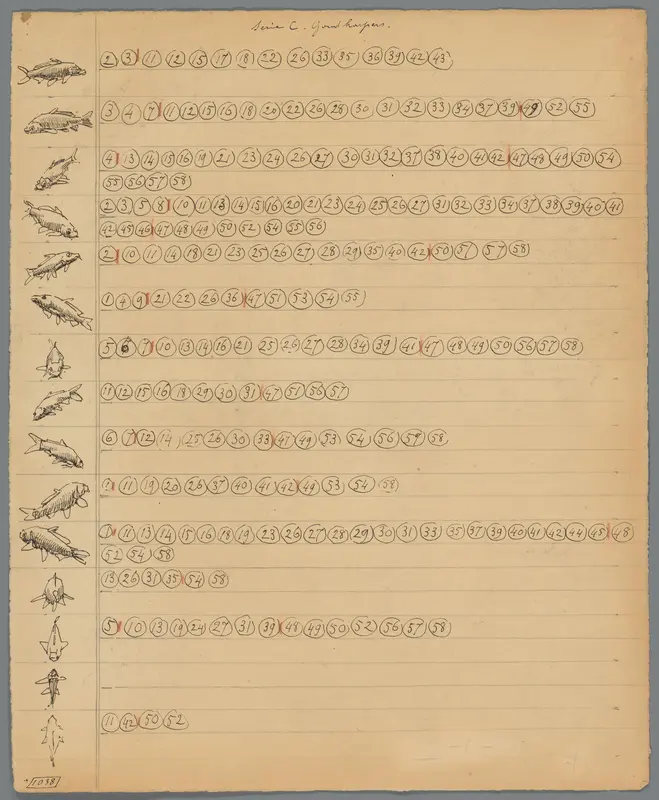 Serie C. Goudkarpers.
2 3 11 12 15 17 18 22 26 33 35 36 39 42 43
3 4 7 11 12 15 16 18 20 22 26 28 30 31 32 33 34 37 39 49 52 55
4 13 14 15 16 19 21 23 24 26 27 30 31 32 37 38 40 41 42 47 48 49 50 54
55 56 57 58
2 3 5 8 10 11 13 14 15 16 20 21 23 24 25 26 27 31 32 33 34 37 38 39 40 41
42 45 46 47 48 49 50 52 54 55 56
2 10 11 14 18 21 23 25 26 27 28 29 35 40 42 50 51 57 58
1 4 9 21 22 26 36 47 51 53 54 55
5 6 7 10 13 14 16 21 25 26 27 28 34 39 41 47 48 49 50 56 57 58
11 12 15 16 18 29 30 31 47 51 56 57
6 7 12 14 25 26 30 33 47 49 53 54 56 57 58
11 19 20 26 37 40 41 42 49 53 54 58
1 11 13 14 15 16 18 19 23 26 27 28 29 30 31 33 35 37 39 40 41 42 44 45 48
52 54 58
13 26 31 35 54 58
5 10 13 19 24 27 31 39 48 49 50 52 56 57 58
11 42 50 52
1038